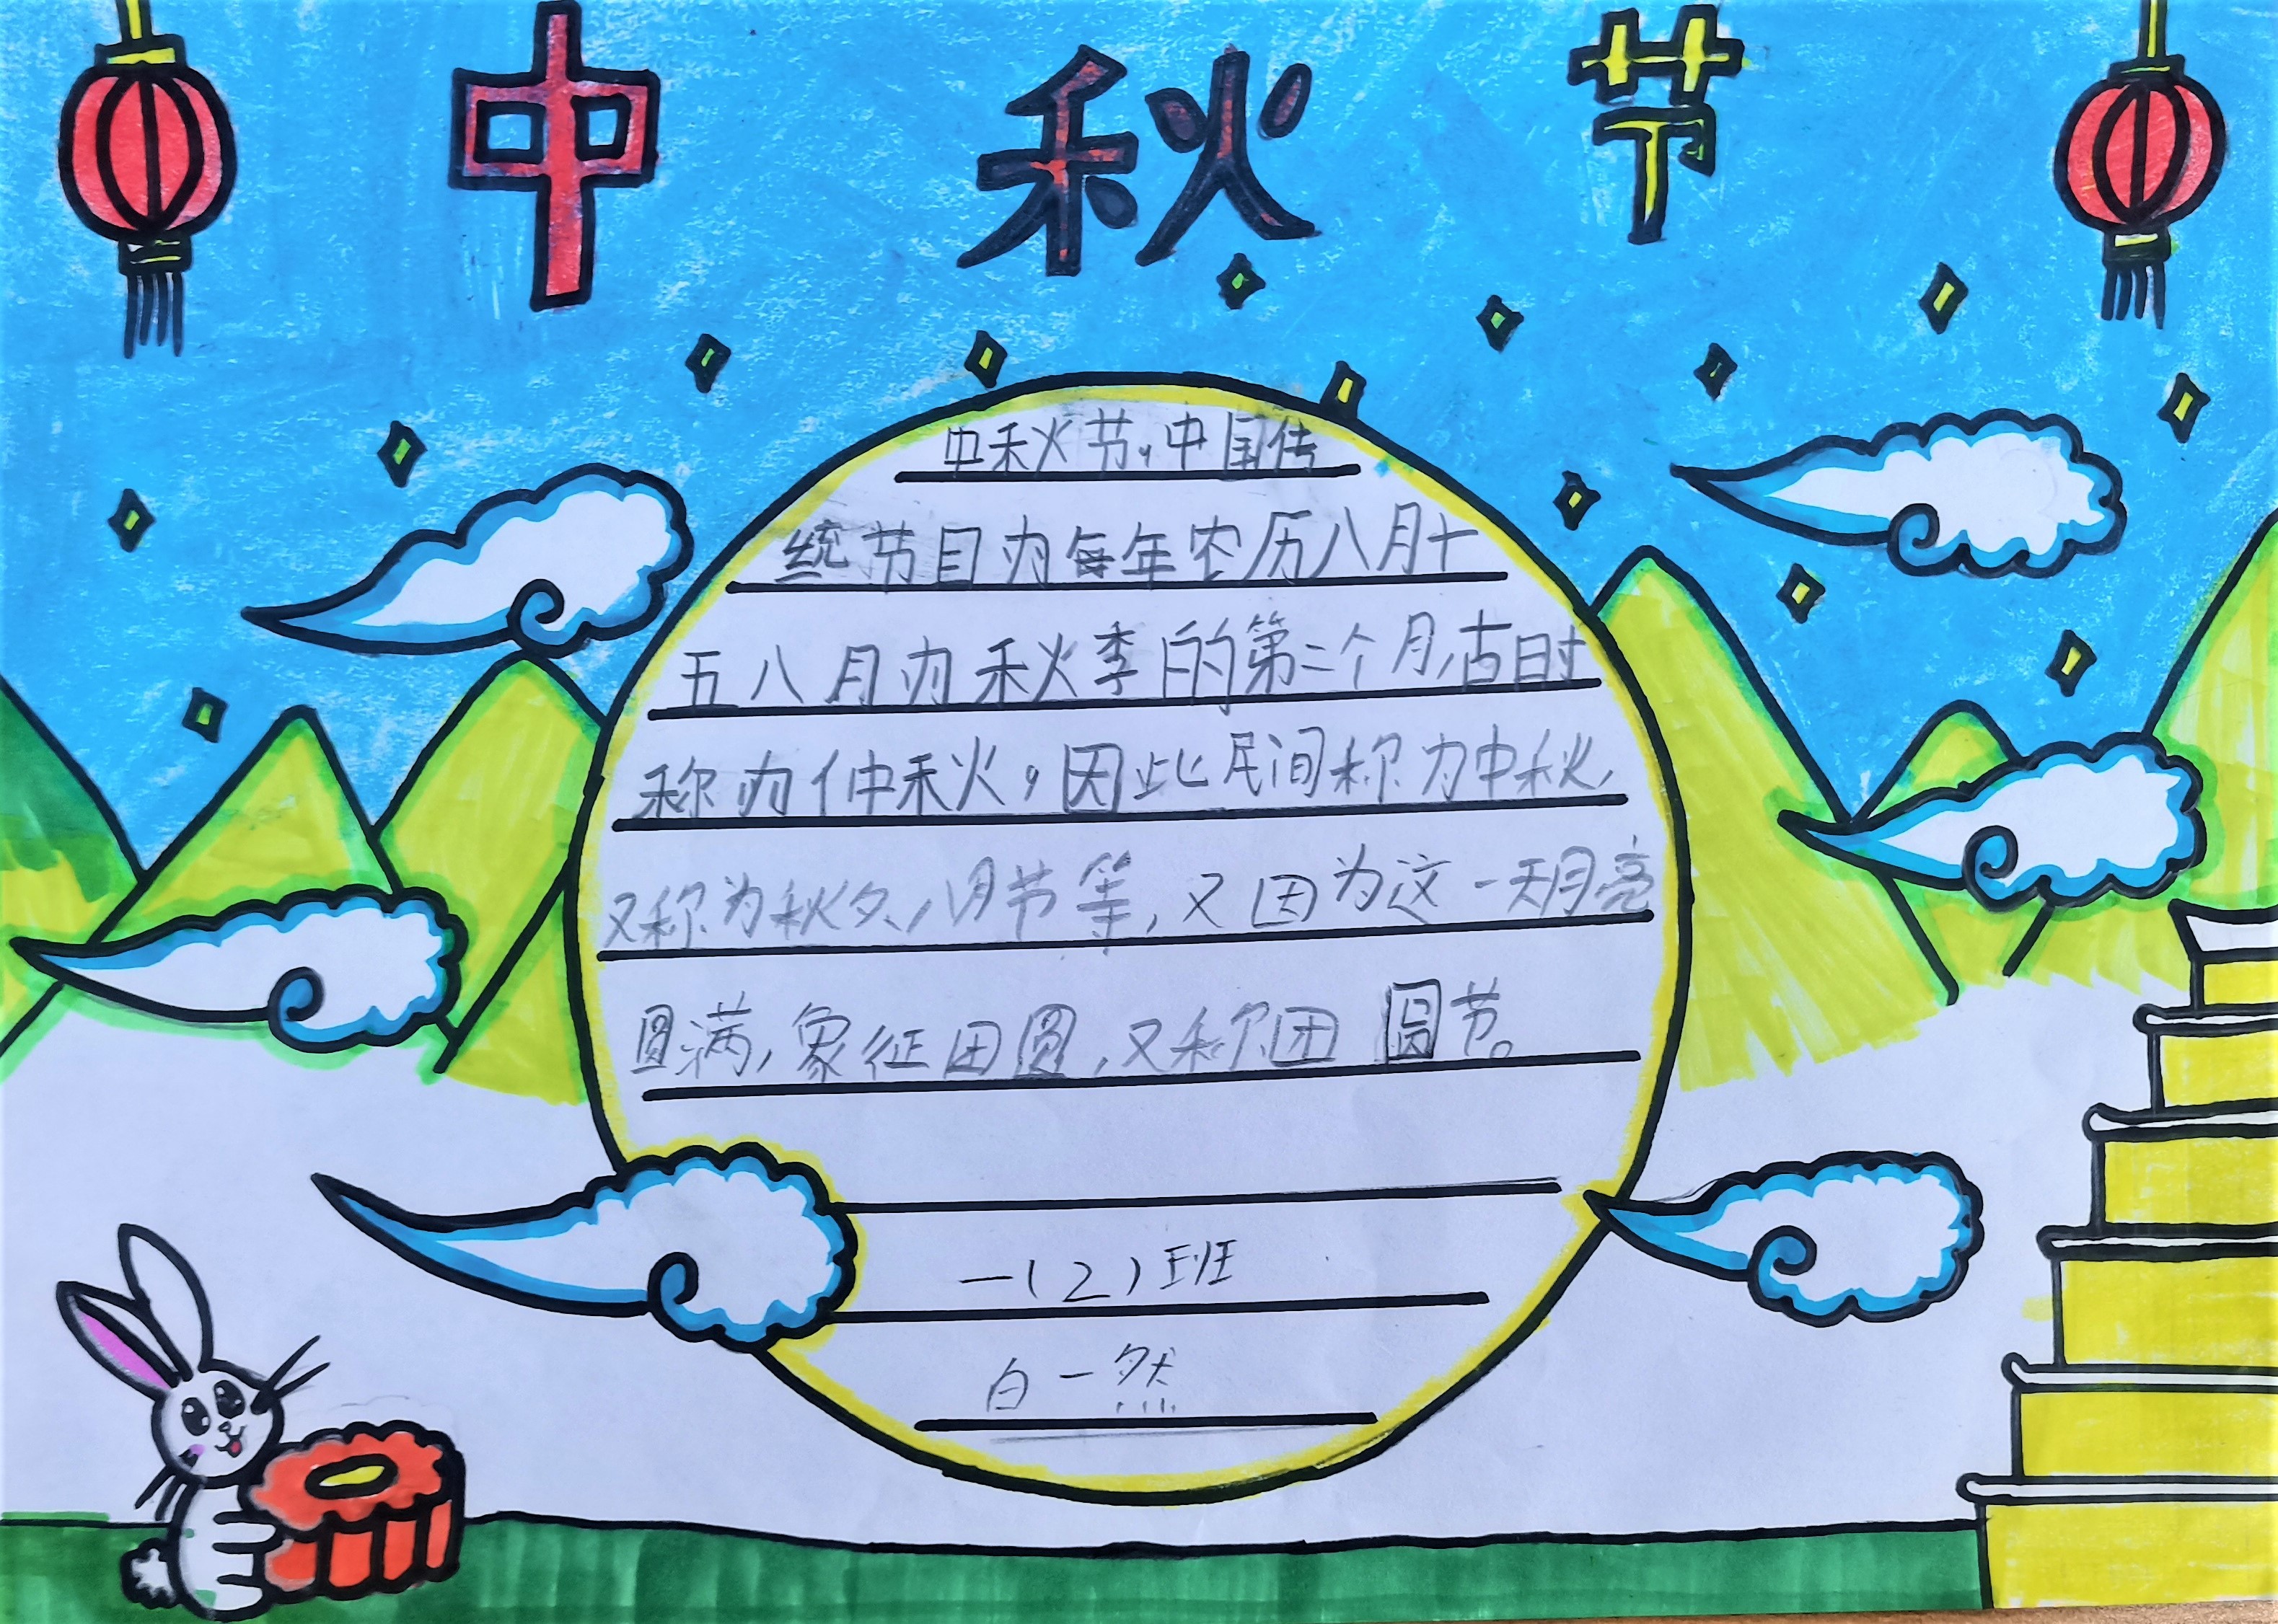 中秋节
中秋节,中国传
统节目为每年农历八月十
五八月为秋季的第二个月,古时
称为仲秋,因此民间称为中秋,
又称为秋夕,八月节等,又因为这一天月亮
圆满,象征团圆,又称团圆节。
一(2)班
白一然